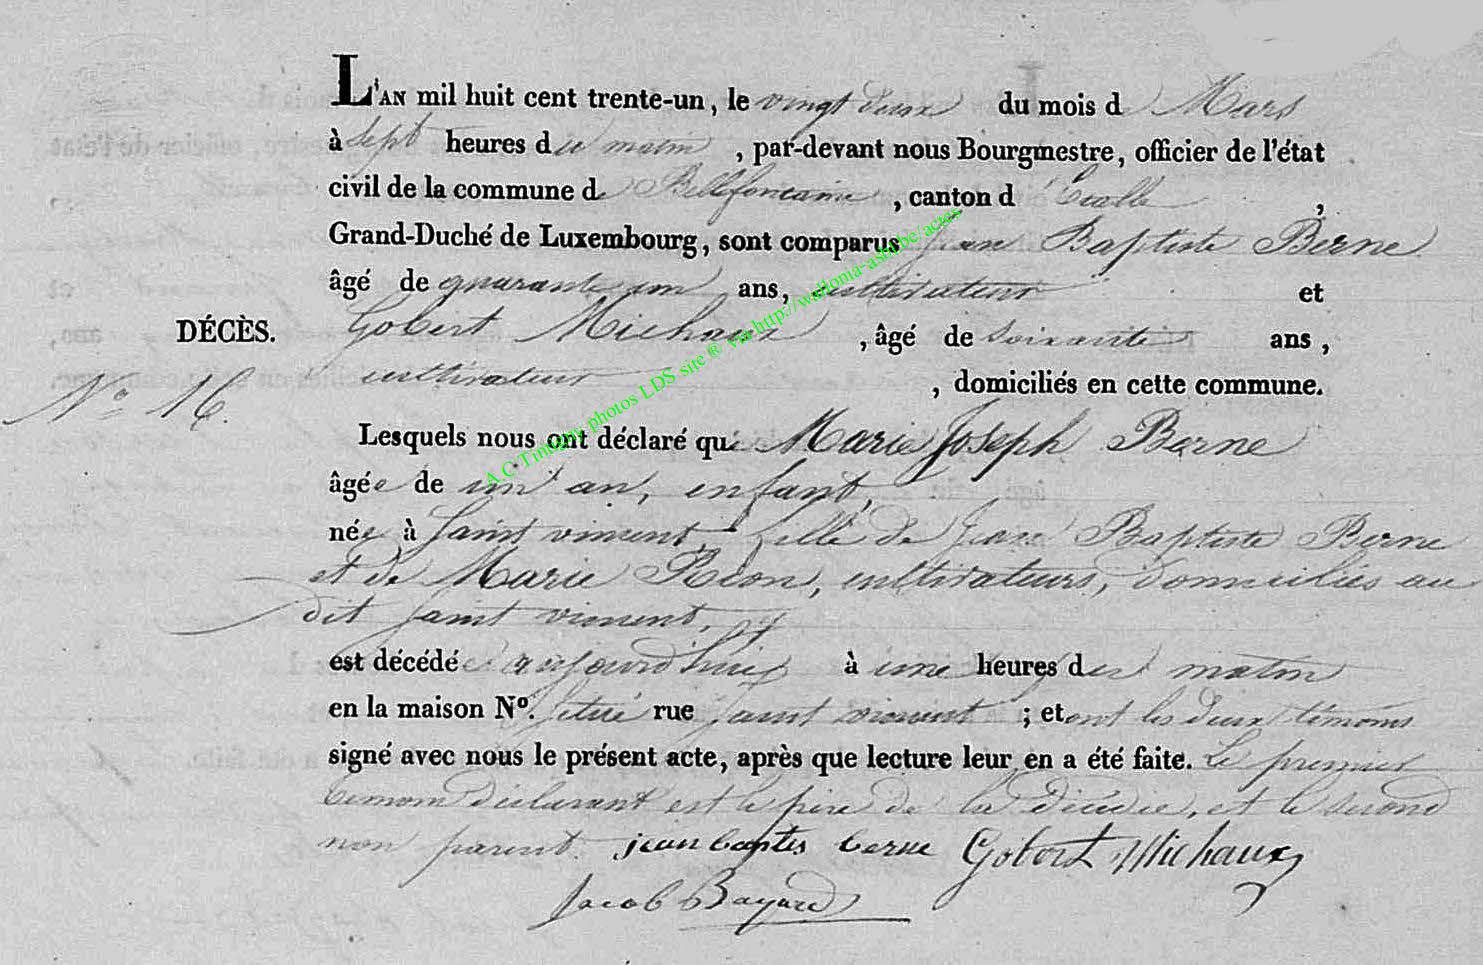 L'AN mil huit cent trente-un, le vingt deux du mois de Mars
à sept heures du matin, par-devant nous Bourgmestre, officier de l'état
civil de la commune de Bellefontaine, canton d'Etalle,
Grand-Duché de Luxembourg, sont comparus Jean Baptiste Berne
âgé de quarante un ans, cultivateur et
DÉCÈS. Gobert Michaux, âgé de soixante ans,
cultivateur, domiciliés en cette commune.
N° 16.
Lesquels nous ont déclaré que Marie Joseph Berne
âgée de un an, enfant,
née à Saint vincent, fille de Jean Baptiste Berne
et de Marie Rion, cultivateurs, domiciliés au
dit saint vincent,
est décédée aujourd'huis à une heures du matin
en la maison N°. situé rue saint vincent; et ont les deux témoins
signé avec nous le présent acte, après que lecture leur en a été faite. Le premier
temoin déclarant est le père de la décédée, et le second
non parent. jean baptis berne Gobert Michaux
Jacob Bayard
A.C Tintigny photos LDS site ® via http://wallonia-asbl.be/actes